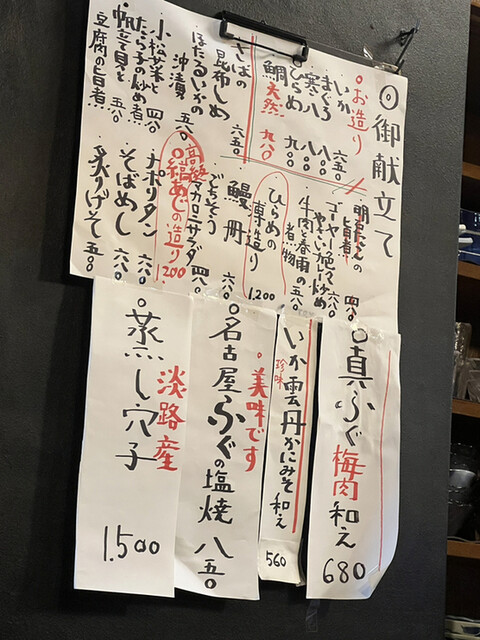 ◎御献立て
○お造り
・いか 六五〇
・まぐろ 八〇〇
・寒八 八〇〇
・ひらめ 九〇〇
・鯛 天然 九八〇
・さばの
昆布しめ 六五〇
・ほたるいかの
沖漬 五八〇
・小松菜と
たら子の炒め煮 四八〇
・帆立貝と
豆腐の旨煮 五八〇
・明日たんの
旨煮 四八〇
・ゴーヤー
やさい炒め 六八〇
・牛肉と春雨の
煮物 五八〇
・ひらめの
薄造り 1,200
・鰻丼
・ごちそう
マカロニサラダ 四八〇
高級
○縞あじの造り 1,200
・ナポリタン 六八〇
・そばめし 六八〇
・炙りげそ 五〇〇
○真ふぐ梅肉和え 680
・いか雲丹かにみそ和え
珍味
560
○美味です
○名古屋ふぐの塩焼 八五〇
淡路産
○蒸し穴子
1.500